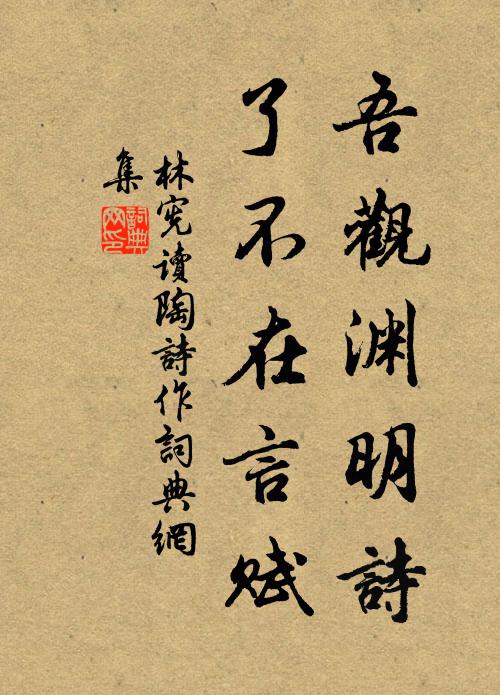 吾觀渊明詩
了不在言賦
林宪讀陶詩作詞典網
集
詞典
网印